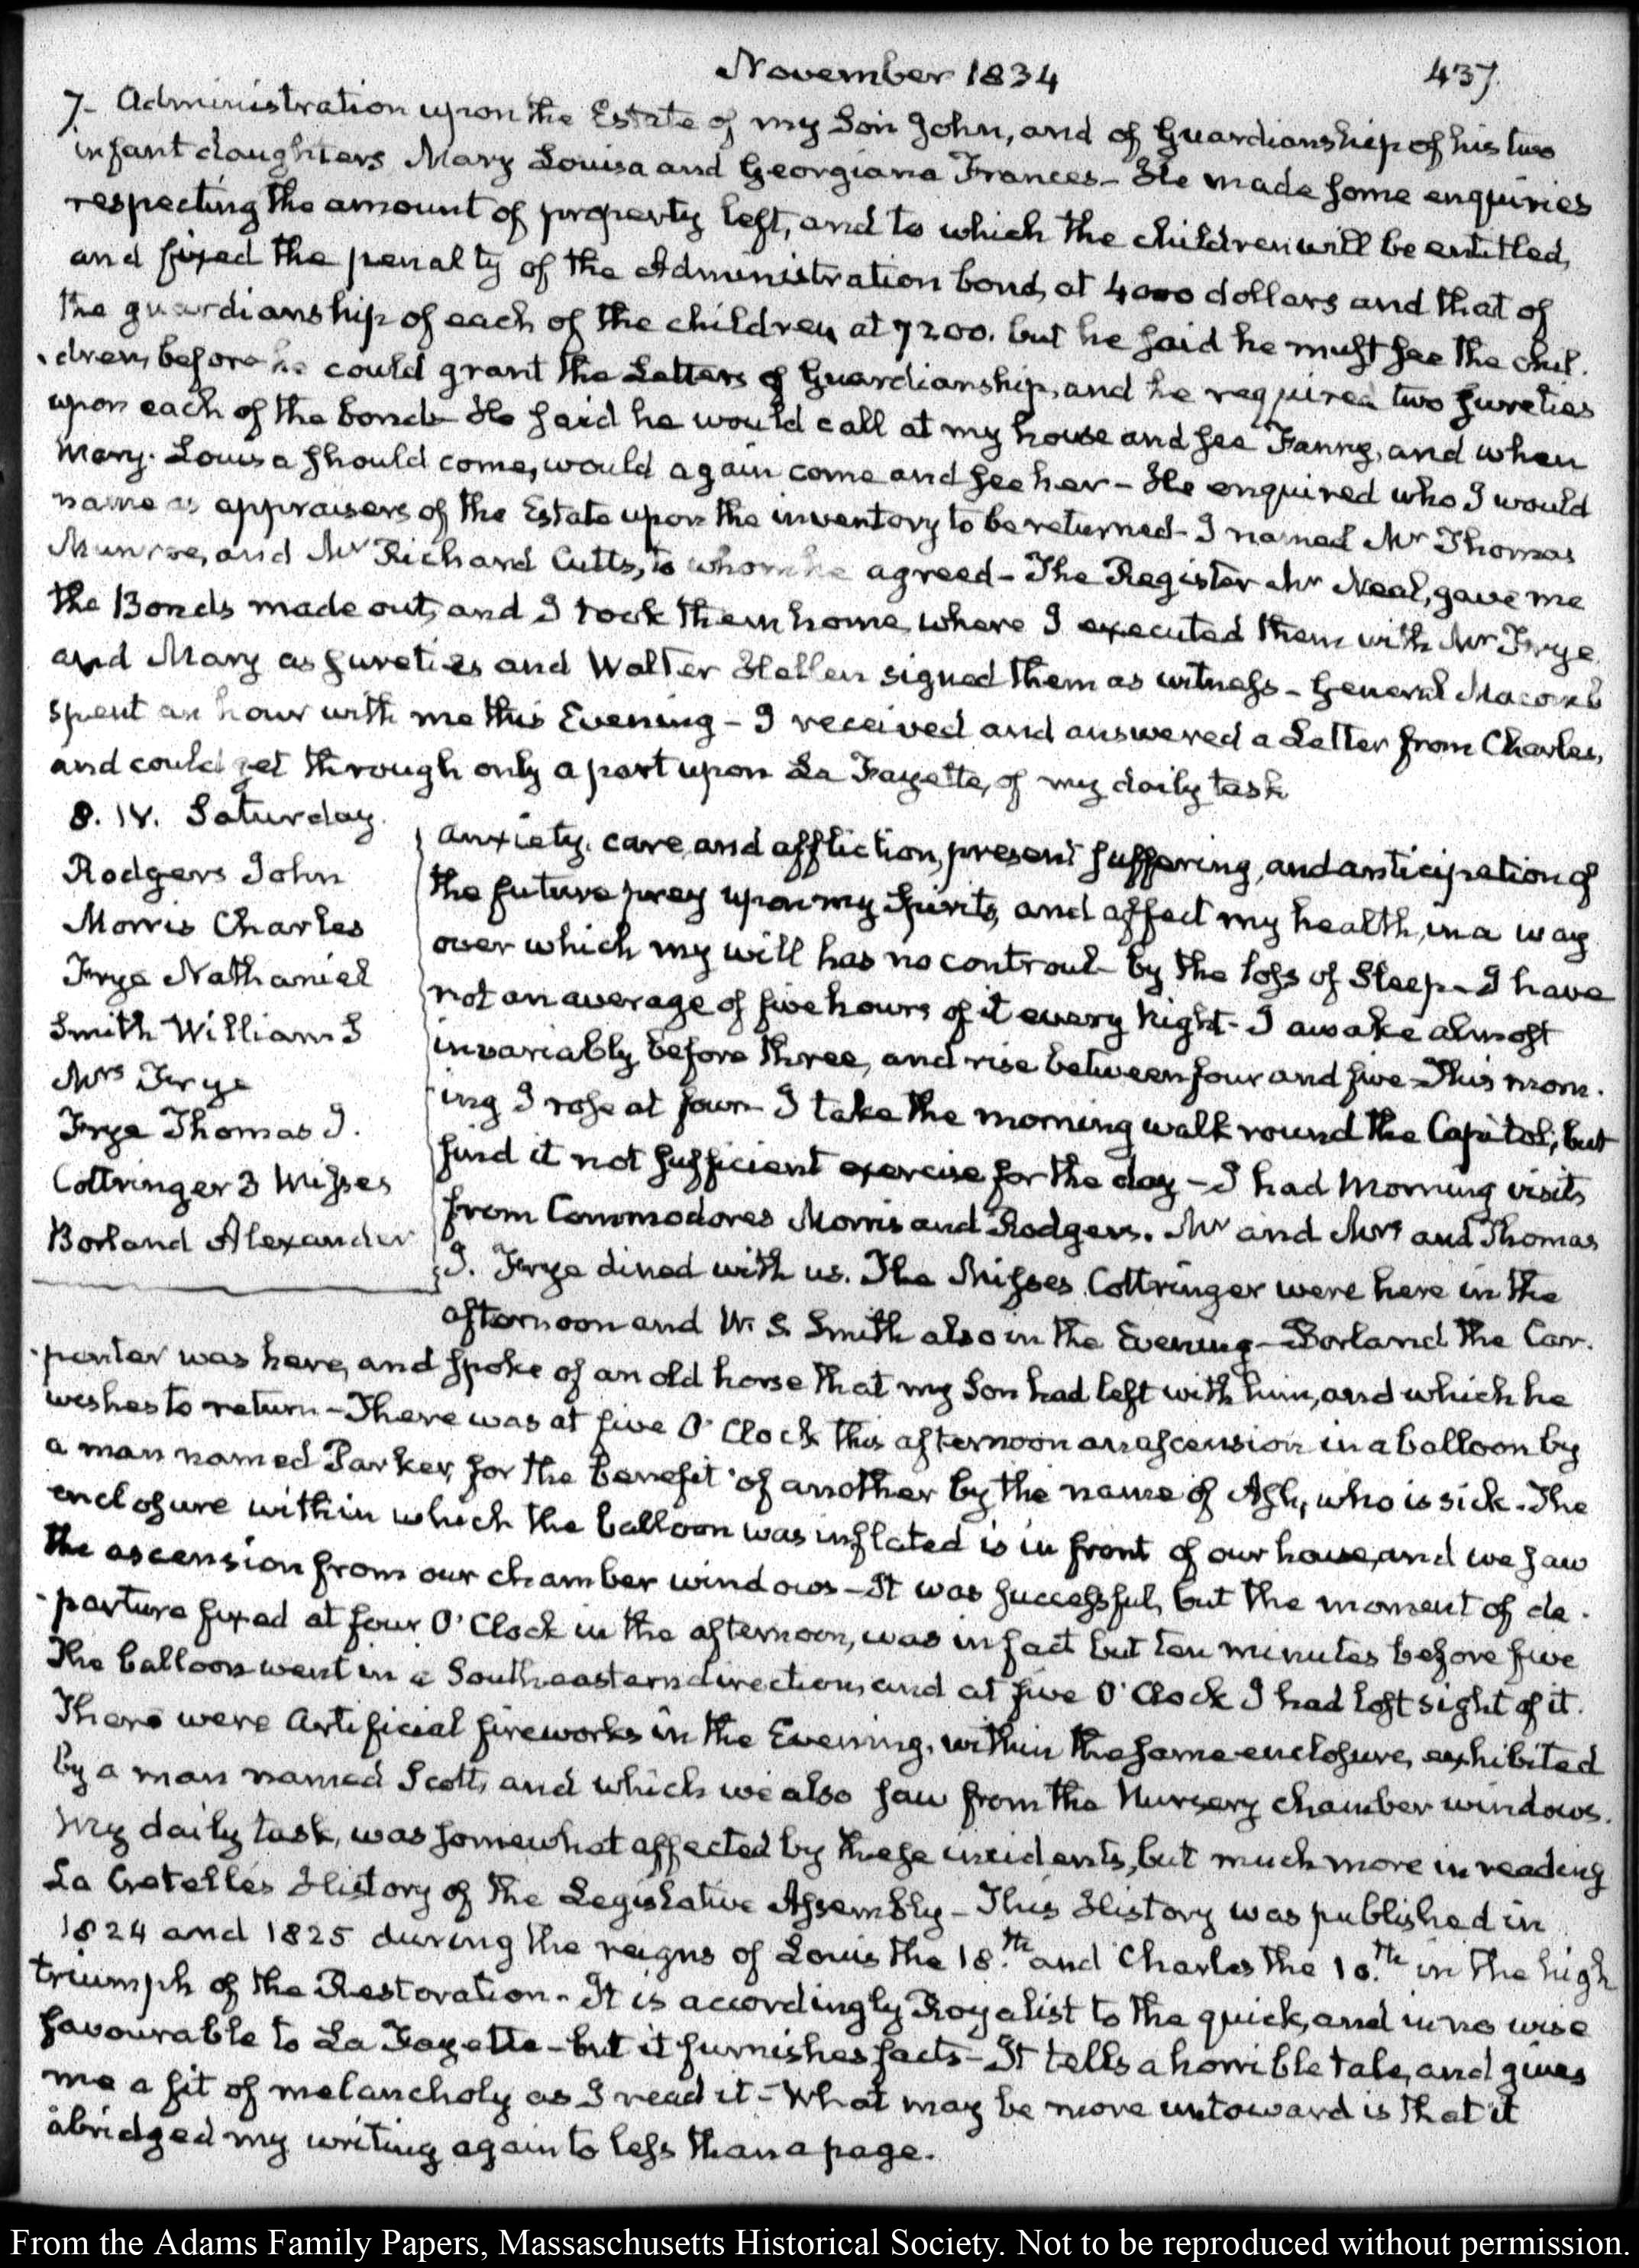 November 1834
437.
7. Administration upon the Estate of my Son John, and of Guardianship of his two
infant daughters Mary Louisa and Georgiana Frances — He made some enquiries
respecting the amount of property left, and to which the children will be entitled,
and fixed the penalty of the Administration bond, at 4000 dollars and that of
the guardianship of each of the children at 7200. but he said he must see the chil-
dren, before he could grant the Letters of Guardianship, and he required two sureties
upon each of the bonds — He said he would call at my house and see Fanny, and when
Mary-Louisa should come, would again come and see her — He enquired who I would
name as appraisers of the Estate upon the inventory to be returned — I named Mr Thomas
Munroe, and Mr Richard Cutts, to whom he agreed — The Register Mr Neal, gave me
the Bonds made out, and I took them home, where I executed them with Mr Frye
and Mary as sureties and Walter Hellen signed them as witness — General Macomb
spent an hour with me this Evening — I received and answered a Letter from Charles,
and could get through only a part upon La Fayette, of my daily task
8. IV. Saturday.
Rodgers John
Morris Charles
Frye Nathaniel
Smith William S
Mrs Frye
Frye Thomas J.
Cottringer 3 Misses
Borland Alexander
Anxiety, care, and affliction, present suffering, and anticipation of
the future prey upon my Spirits, and affect my health, in a way
over which my will has no controul — by the loss of Sleep — I have
not an average of five hours of it every Night — I awake almost
invariably before three, and rise between four and five — This morn-
ing I rose at four — I take the morning walk round the Capitol, but
find it not sufficient exercise for the day — I had Morning visits
from Commodores Morris and Rodgers. Mr and Mrs and Thomas
J. Frye dined with us. The Misses Cottringer were here in the
afternoon and W. S. Smith also in the Evening — Borland the Car-
penter was here, and spoke of an old horse that my Son had left with him, and which he
wishes to return — There was at five O'Clock this afternoon an ascension in a balloon by
a man named Parker, for the benefit of another by the name of Ash, who is sick. The
enclosure within which the balloon was inflated is in front of our house, and we saw
the ascension from our chamber windows — It was successful, but the moment of de-
parture fixed at four O'Clock in the afternoon, was in fact but ten minutes before five
The balloon went in a Southeastern direction, and at five O'Clock I had lost sight of it.
There were Artificial fireworks in the Evening, within the same enclosure, exhibited
by a man named Scott, and which we also saw from the Nursery chamber windows.
My daily task, was somewhat affected by these incidents, but much more in reading
La Cretelle's History of the Legislative Assembly — This History was published in
1824 and 1825 during the reigns of Louis the 18.th and Charles the 10.th in the high
triumph of the Restoration. It is accordingly Royalist to the quick, and in no wise
favourable to La Fayette — but it furnishes facts — It tells a horrible tale, and gives
me a fit of melancholy as I read it — What may be more untoward is that it
abridged my writing again to less than a page.
From the Adams Family Papers, Massachusetts Historical Society. Not to be reproduced without permission.